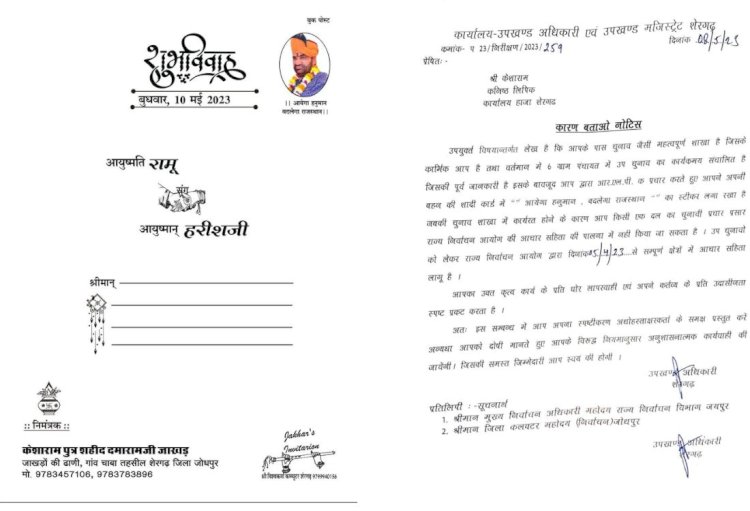 बुक पोस्ट
शुभविवाह
बुधवार, 10 मई 2023
।। आवेगा हनुमान
बदलेगा राजस्थान।।
आयुष्मति रामू
संग
आयुष्मान् हरीशजी
श्रीमान्
:: निमंत्रक ::
केशाराम पुत्र शहीद दमारामजी जाखड़
जाखड़ों की ढाणी, गांव चाबा तहसील शेरगढ़ जिला जोधपुर
मो. 9783457106, 9783783896
Jakhar's
Invitation
श्री विश्वकर्मा कम्प्यूटर शेरगढ़ 9799940156
कार्यालय-उपखण्ड अधिकारी एवं उपखण्ड मजिस्ट्रेट शेरगढ़
कमांक- प 23/निरीक्षण/2023/259
दिनांक 08/5/23
प्रेषितः-
श्री केशाराम
कनिष्ठ लिपिक
कार्यालय हाजा शेरगढ़
कारण बताओ नोटिस
उपर्युक्त विषयान्तर्गत लेख है कि आपके पास चुनाव जैसी महत्वपूर्ण शाखा है जिसके
कार्मिक आप है तथा वर्तमान में 6 ग्राम पंचायत में उप चुनाव का कार्यकमय संचालित है
जिसकी पूर्व जानकारी है इसके बावजूद आप द्वारा आर.एल.पी. क प्रचार करते हुए आपने अपनी
बहन की शादी कार्ड में "" आवेगा हनुमान , बदलेगा राजस्थान "" का स्टीकर लगा रखा है
जबकी चुनाव शाखा में कार्यरत होने के कारण आप किसी एक दल का चुनावी प्रचार प्रसार
राज्य निर्वाचन आयोग की आचार सहिता की पालना में नही किया जा सकता है । उप चुनावो
को लेकर राज्य निर्वाचन आयोग द्वारा दिनांक 05/4/23 से सम्पूर्ण क्षेत्रों में आचार सहिता
लागू है ।
आपका उक्त कृत्य कार्य के प्रति घोर लापरवाही एवं अपने कर्तव्य के प्रति उदासीनता
स्पष्ट प्रकट करता है ।
अतः इस सम्बन्ध में आप अपना स्पष्टीकरण अधोहस्ताक्षरकर्ता के समक्ष प्रस्तुत करें
अन्यथा आपको दोषी मानते हुए आपके विरुद्ध नियमानुसार अनुशासनात्मक कार्यवाही की
जायेगी। जिसकी समस्त जिम्मेदारी आप स्वय की होगी ।
उपखण्ड अधिकारी
शेरगढ़
प्रतिलिपी : -सूचनार्थ
1. श्रीमान मुख्य निर्वाचन अधिकारी महोदय राज्य निर्वाचन विभाग जयपुर
2. श्रीमान जिला कलक्टर महोदय (निर्वाचन)जोधपुर
उपखण्ड अधिकारी
शेरगढ़